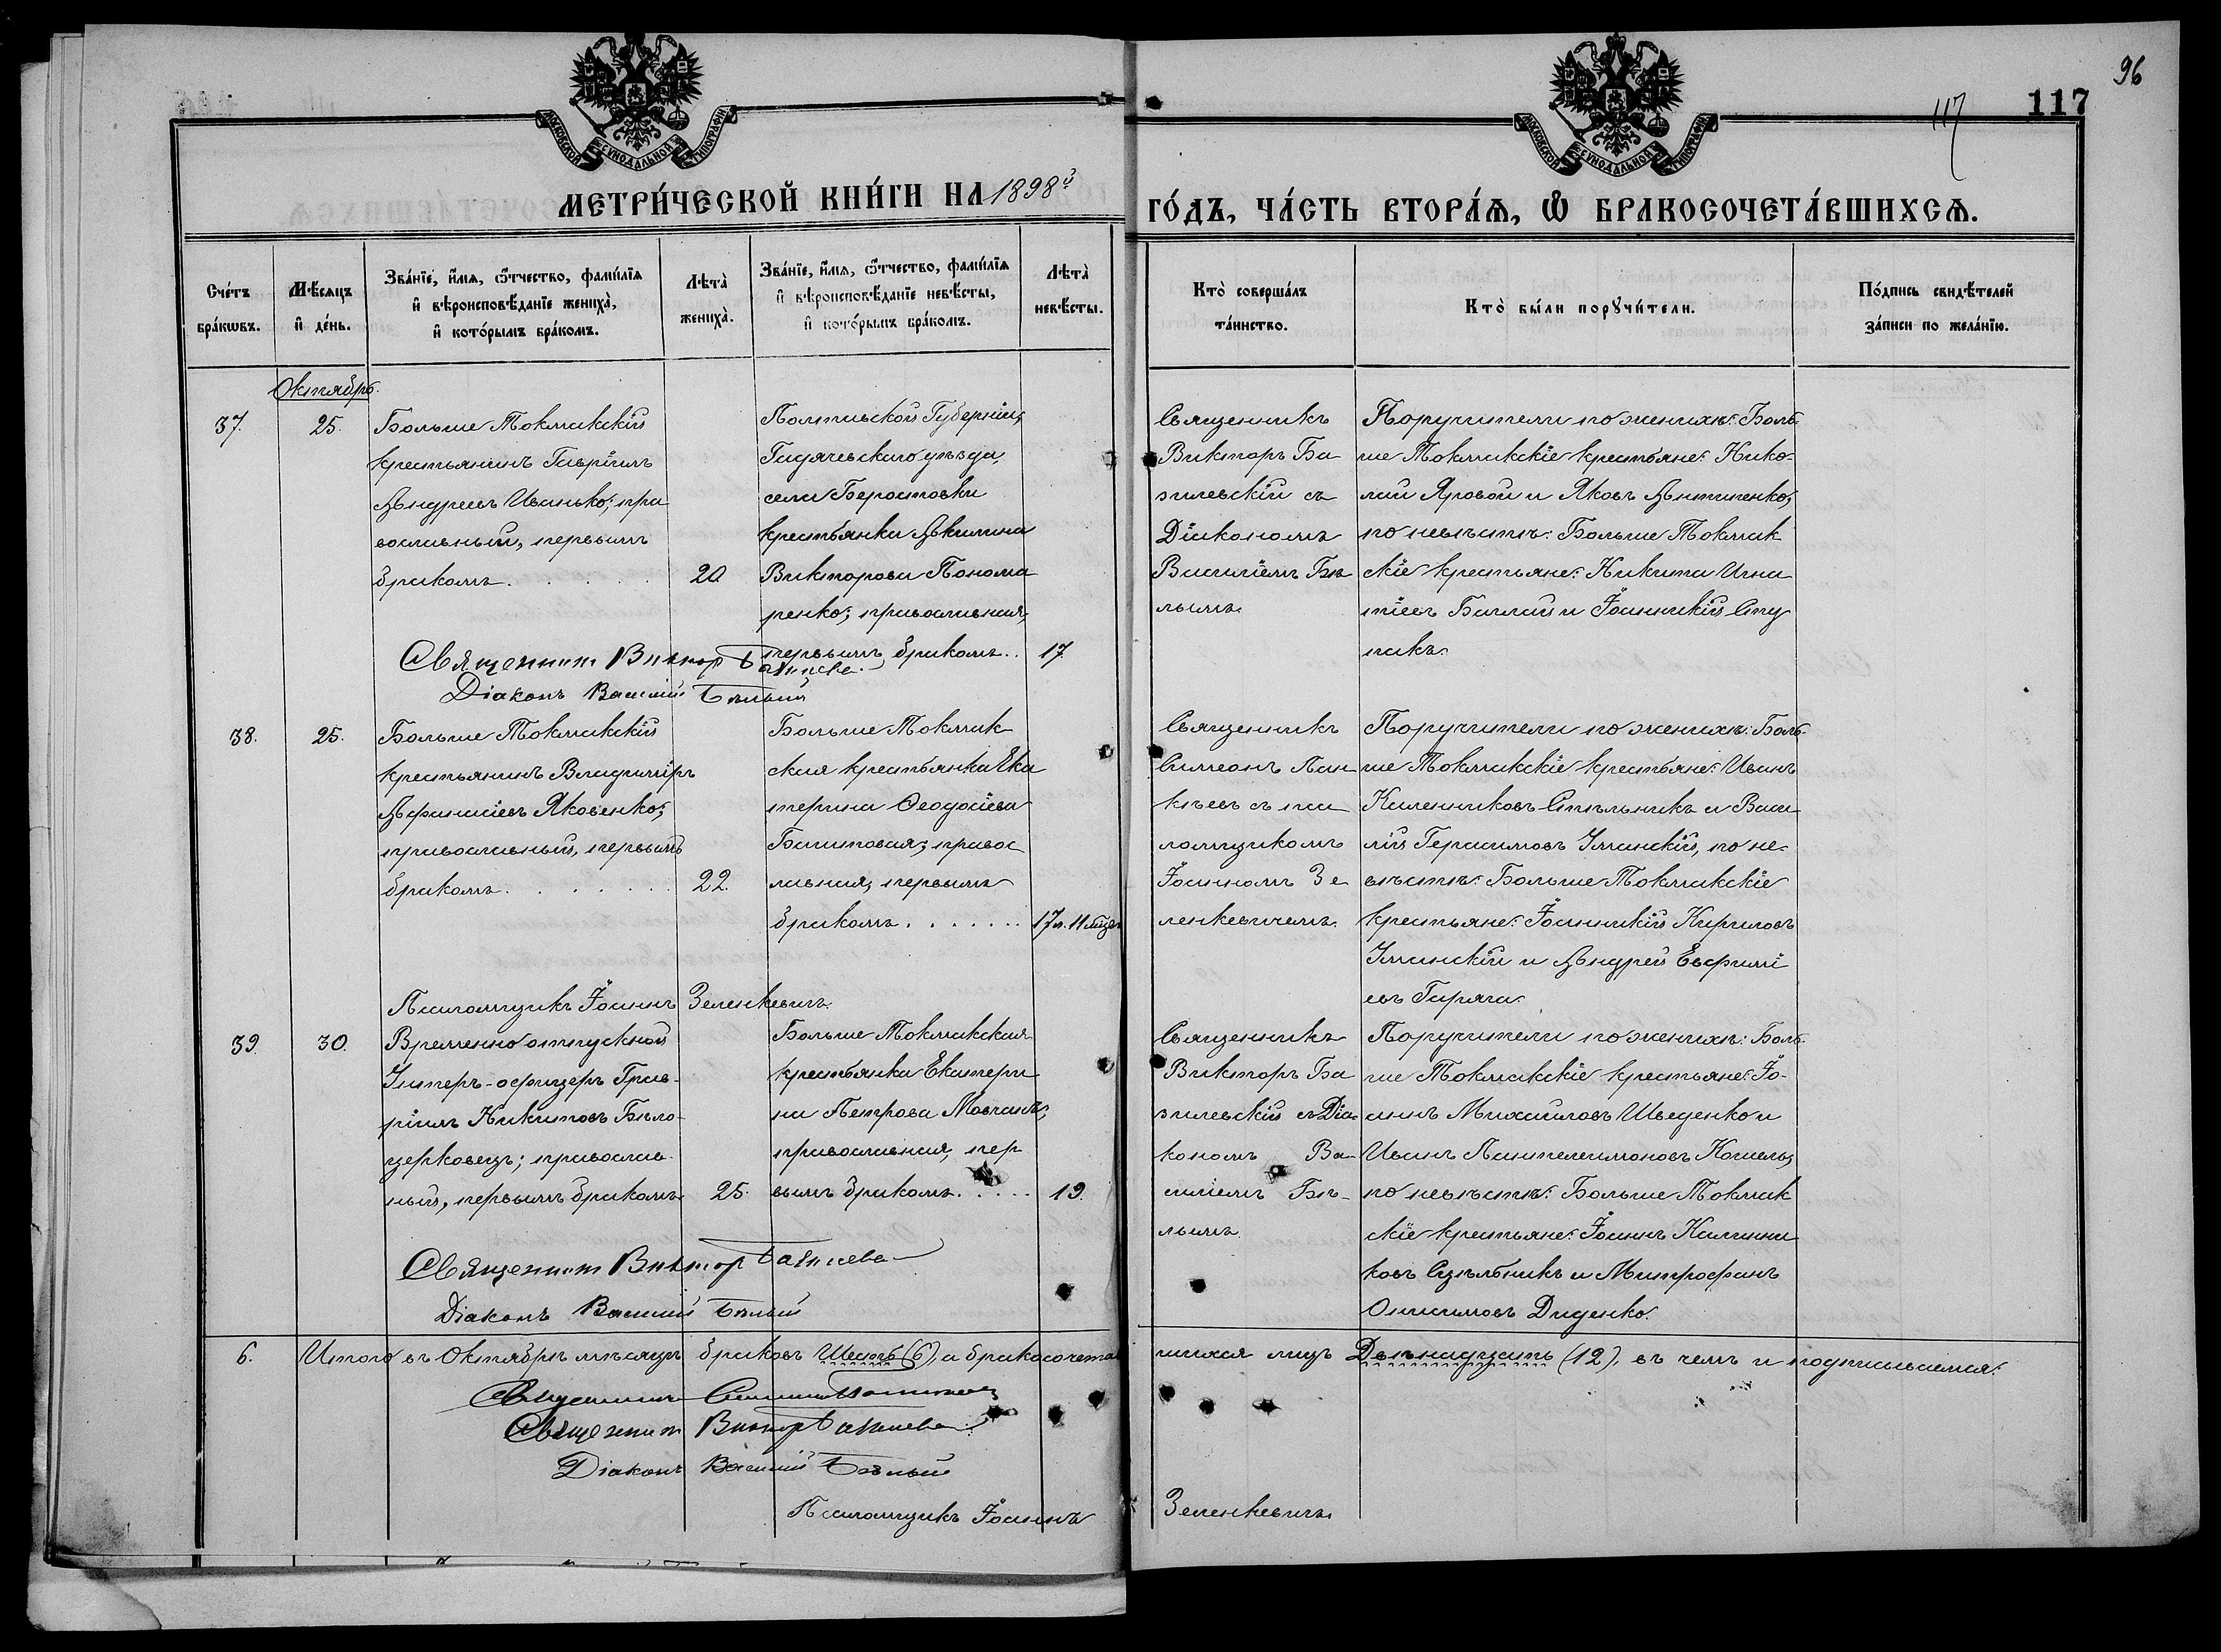 96
117
117
МОСКОВСКОЙ СУНОДАЛЬНОЙ ТИПОГРАФІИ
МОСКОВСКОЙ СУНОДАЛЬНОЙ ТИПОГРАФІИ
МЕТРИ́ЧЕСКОЙ КНИ́ГИ НА 1898й
ГО́ДЪ, ЧА́СТЬ ВТОРА́Ѧ, Ѽ БРАКОСОЧЕТА́ВШИХСѦ.
Сче́тъ бра́кѡвъ.
Мѣ́сяцъ и҆ де́нь.
Зва́нїе, и҆́мѧ, ѻ҆́тчество, фами́лїѧ
и҆ вѣроисповѣ́данїе жениха̀,
и҆ кото́рымъ бра́комъ.
Лѣта̀ жениха̀.
Зва́нїе, и҆́мѧ, ѻ҆́тчество, фами́лїѧ
и҆ вѣроисповѣ́данїе невѣ́сты,
и҆ кото́рымъ бра́комъ.
Лѣта̀ невѣ́сты.
Кто̀ соверша́лъ
та́инство.
Кто̀ бы́ли порꙋчи́тели.
По́дпись свидѣ́телей
за́писи по жела́нїю.
Октябрь.
37.
25.
Больше Токмакскій
крестьянинъ Гавріилъ
Андреевъ Иванько; пра
вославный, первымъ
бракомъ.
20
Полтавской Губерніи,
Гадячевскаго уѣзда,
села Берестовки
крестьянка Акилина
Викторова Понома
ренко; православная,
первымъ бракомъ..
17.
Священникъ
Викторъ Ба
зилевскій съ
Діакономъ
Василіемъ Бѣ
лымъ.
Поручители по женихѣ: Боль-
ше Токмакскіе крестьяне: Нико-
лай Яровой и Яковъ Антипенко,
по невѣстѣ: Больше Токмак
скіе крестьяне: Никита Игна
тіевъ Баглай и Іоанникій Сту
пакъ.
Священникъ Викторъ Базилевс
Діаконъ Василій Бѣлый
38.
25.
Больше Токмакскій
крестьянинъ Владиміръ
Афанасіевъ Яковенко;
православный, первымъ
бракомъ.
22.
Больше Токмак
ская крестьянка Ека
терина Феодосіева
Баштовая; правос
лавная, первымъ
бракомъ
17 л. 11 мѣцев
Священникъ
Симеонъ Пан
кѣевъ съ пса
ломщикомъ
Іоанномъ Зе
ленкевичемъ.
Поручители по женихѣ: Боль-
ше Токмакскіе крестьяне: Иванъ
Каленниковъ Стрѣльникъ и Васи
лій Герасимовъ Уманскій, по не-
вѣстѣ: Больше Токмакскіе
крестьяне: Іоанникій Кириловъ
Уманскій и Андрей Евфимі
евъ Гиряга.
Псаломщикъ Іоаннъ Зеленкевичъ.
39.
30.
Временно отпускной
Унтеръ-офицеръ Гав-
ріилъ Никитовъ Бѣло-
церковецъ; православ-
ный, первымъ бракомъ
25.
Больше Токмакская
крестьянка Екатери
на Петрова Мовчанъ;
православная, пер
вымъ бракомъ.
19.
Священникъ
Викторъ Ба
зилевскій съ Діа-
кономъ Ва-
силіемъ Бѣ-
лымъ.
Поручители по женихѣ: Боль-
ше Токмакскіе крестьяне: Іо-
аннъ Михаиловъ Шведенко и
Иванъ Пантелеимоновъ Кошель,
по невѣстѣ: Больше Токмак
скіе крестьяне: Іоаннъ Калинни
ковъ и Митрофанъ
Онисимовъ Диденко.
Священникъ Викторъ Базилевс
Діаконъ Василій Бѣлый
6. Итого въ Октябрѣ мѣсяцѣ браковъ Шесть (6), а бракосочетав
шихся лицъ Двѣнадцать (12), въ чемъ и подписываемся:
Священникъ Симеонъ Панкѣевъ
Священникъ Викторъ Базилевс
Діаконъ Василій Бѣлый
Псаломщикъ Іоаннъ Зеленкевичъ.